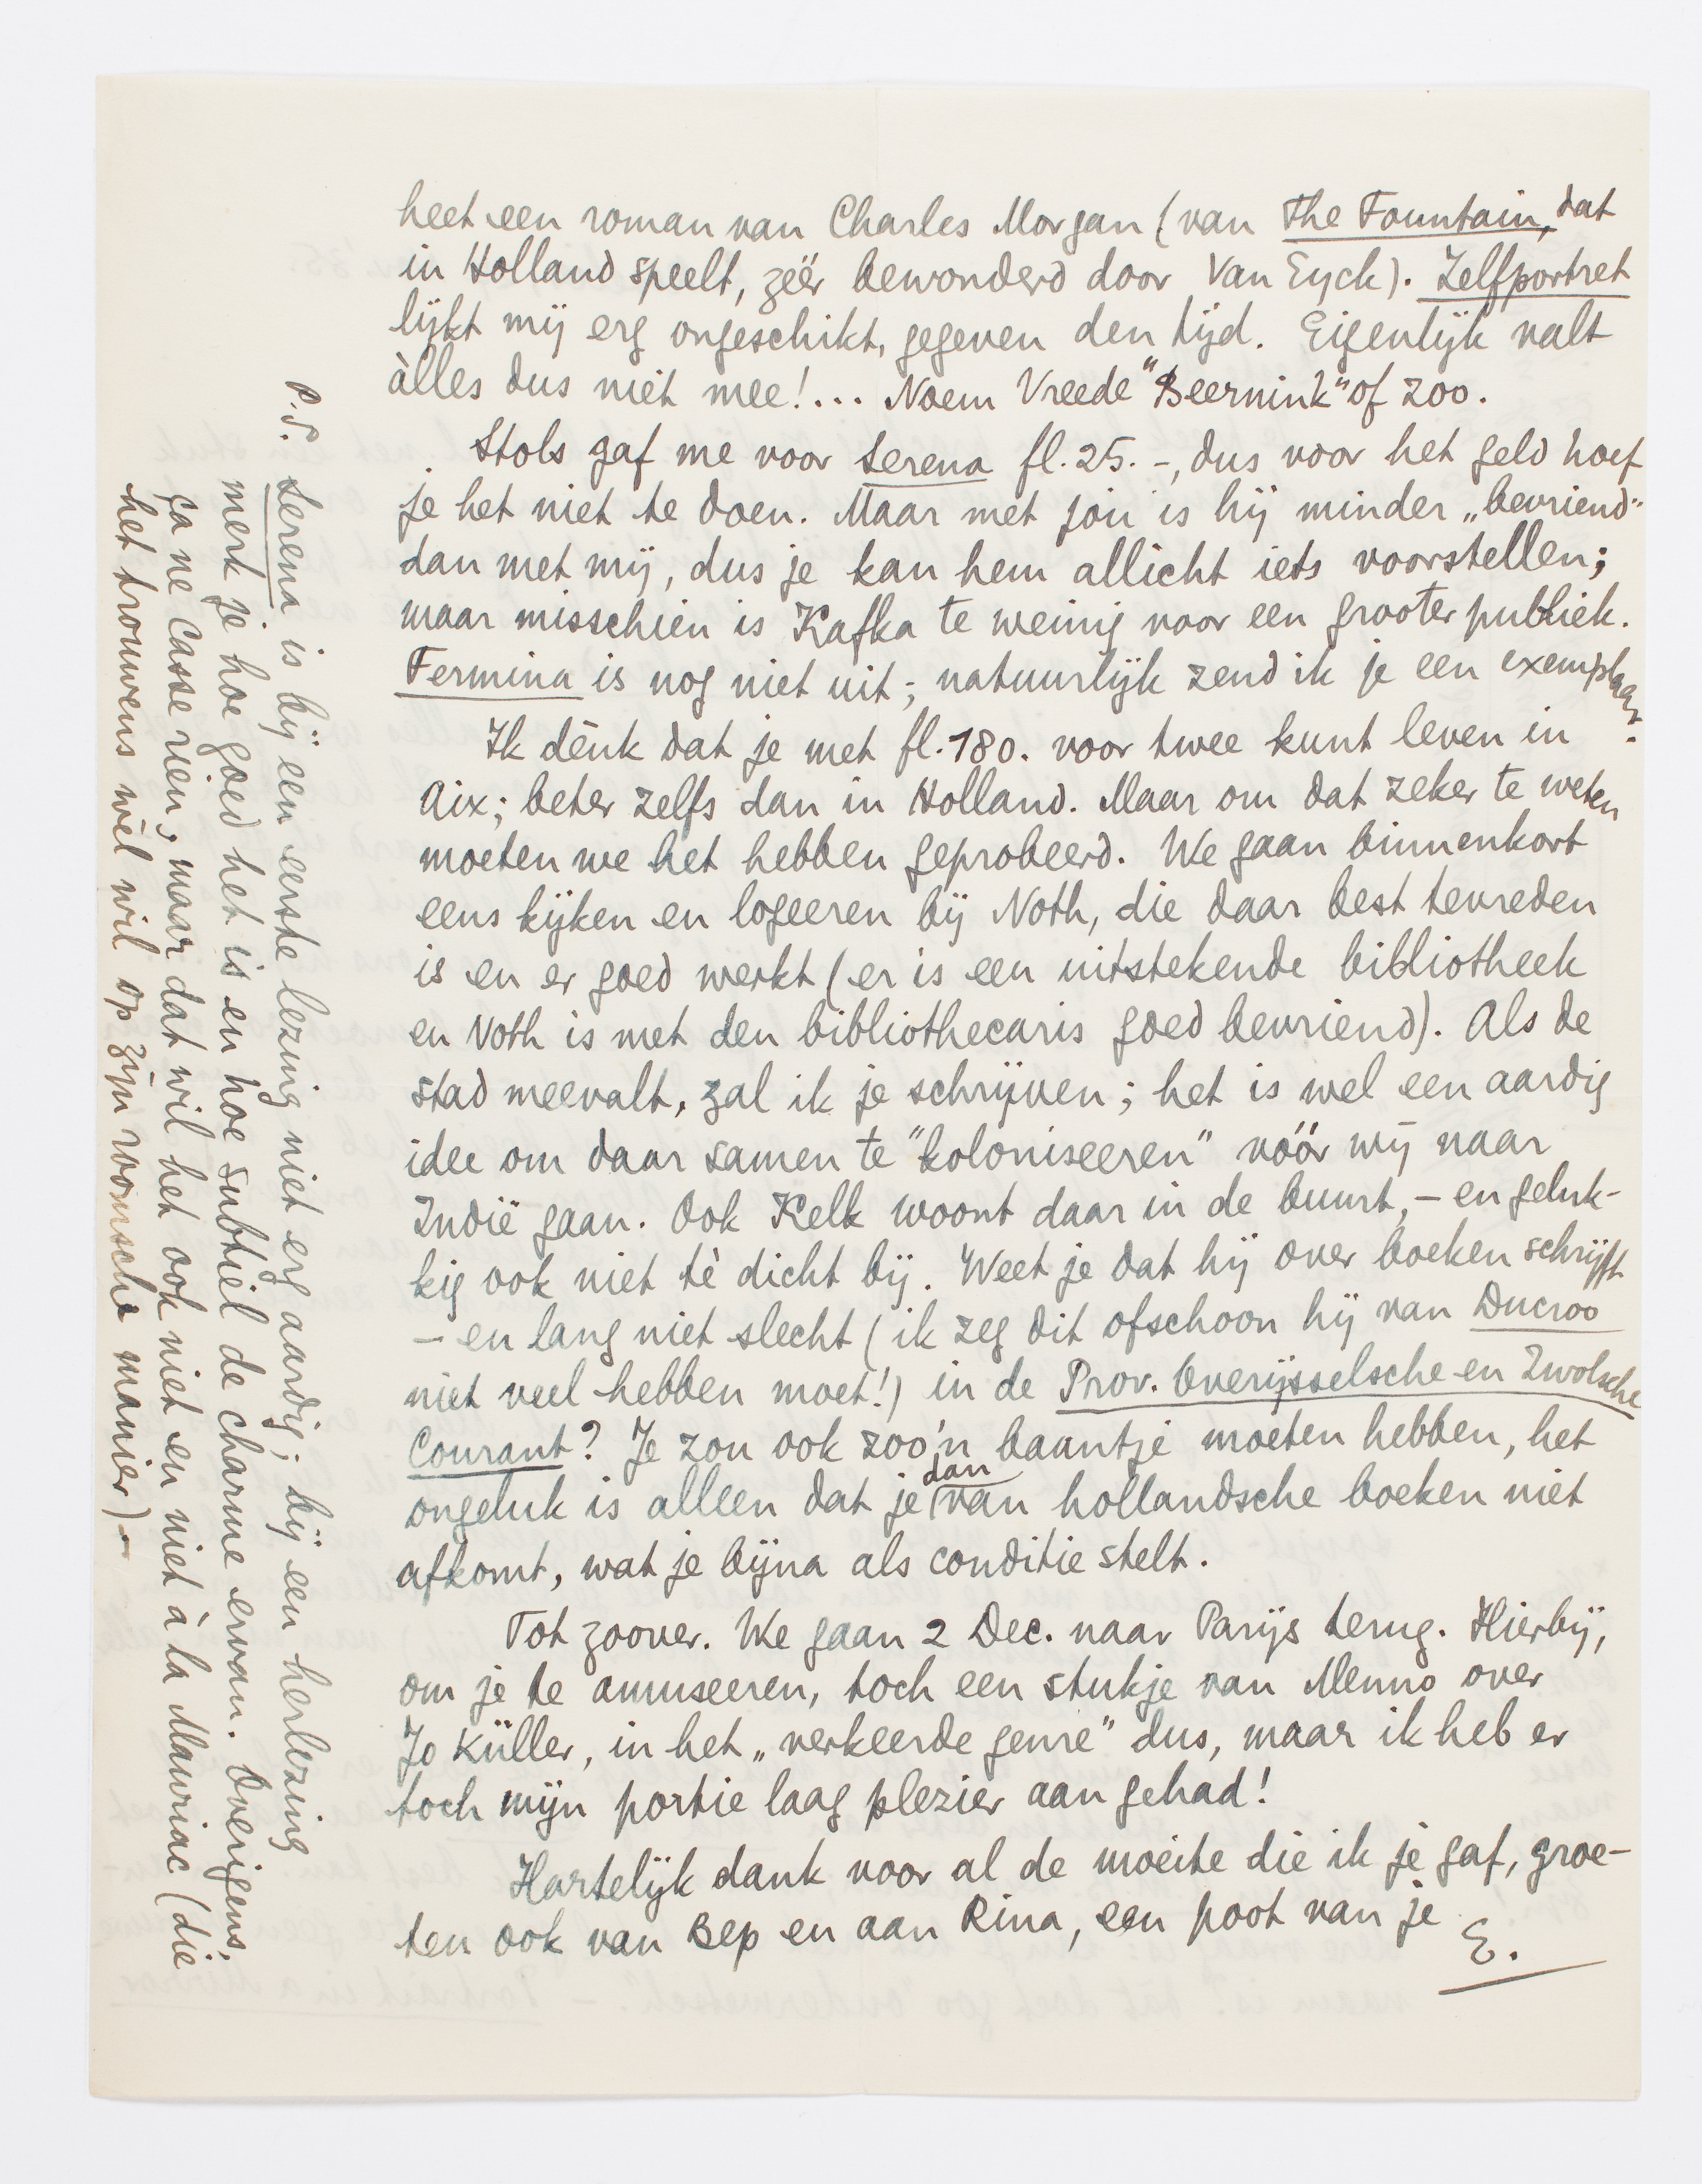 heet een roman van Charles Morgan (van The Fountain, dat
in Holland speelt, zéér bewonderd door Van Eyck). Zelfportret
lijkt mij erg ongeschikt, gegeven den tijd. Eigenlijk valt
àlles dus niet mee!... Noem Vreede "Beernink" of zoo.
Stols gaf me voor Serena fl. 25.-, dus voor het geld hoef
je het niet te doen. Maar met jou is hij minder „bevriend"
dan met mij, dus je kan hem allicht iets voorstellen;
maar misschien is Kafka te weinig voor een grooter publiek.
Fermina is nog niet uit; natuurlijk zend ik je een exemplaar.
Ik dènk dat je met fl. 180. voor twee kunt leven in
Aix; beter zelfs dan in Holland. Maar om dat zeker te weten
moeten we het hebben geprobeerd. We gaan binnenkort
eens kijken en logeeren bij Noth, die daar best tevreden
is en er goed werkt (er is een uitstekende bibliotheek
en Noth is met den bibliothecaris goed bevriend). Als de
stad meevalt, zal ik je schrijven; het is wel een aardig
idee om daar samen te "koloniseeren" vóór wij naar
Indië gaan. Ook Kelk woont daar in de buurt, - en geluk-
kig ook niet tè dicht bij. Weet je dat hij over boeken schrijft
- en lang niet slecht (ik zeg dit ofschoon hij van Ducroo
niet veel hebben moet!) in de Prov. Overijsselsche en Zwolsche
Courant? Je zou ook zoo'n baantje moeten hebben, het
ongeluk is alleen dat je dan van hollandsche boeken niet
afkomt, wat je bijna als conditie stelt.
Tot zoover. We gaan 2 Dec. naar Parijs terug. Hierbij,
om je te amuseeren, toch een stukje van Menno over
Jo Küller, in het „verkeerde genre" dus, maar ik heb er
toch mijn portie laag plezier aan gehad!
Hartelijk dank voor al de moeite die ik je gaf, groe-
ten ook van Bep en aan Rina, een poot van je
E.
P.S. Serena is bij een eerste lezing niet erg aardig; bij een herlezing
merk je hoe goed het is en hoe subtiel de charme ervan. Overigens,
ça ne casse rien, maar dat wil het ook niet en niet à la Mauriac (die
het trouwens wèl wil op zijn roomsche manier).-